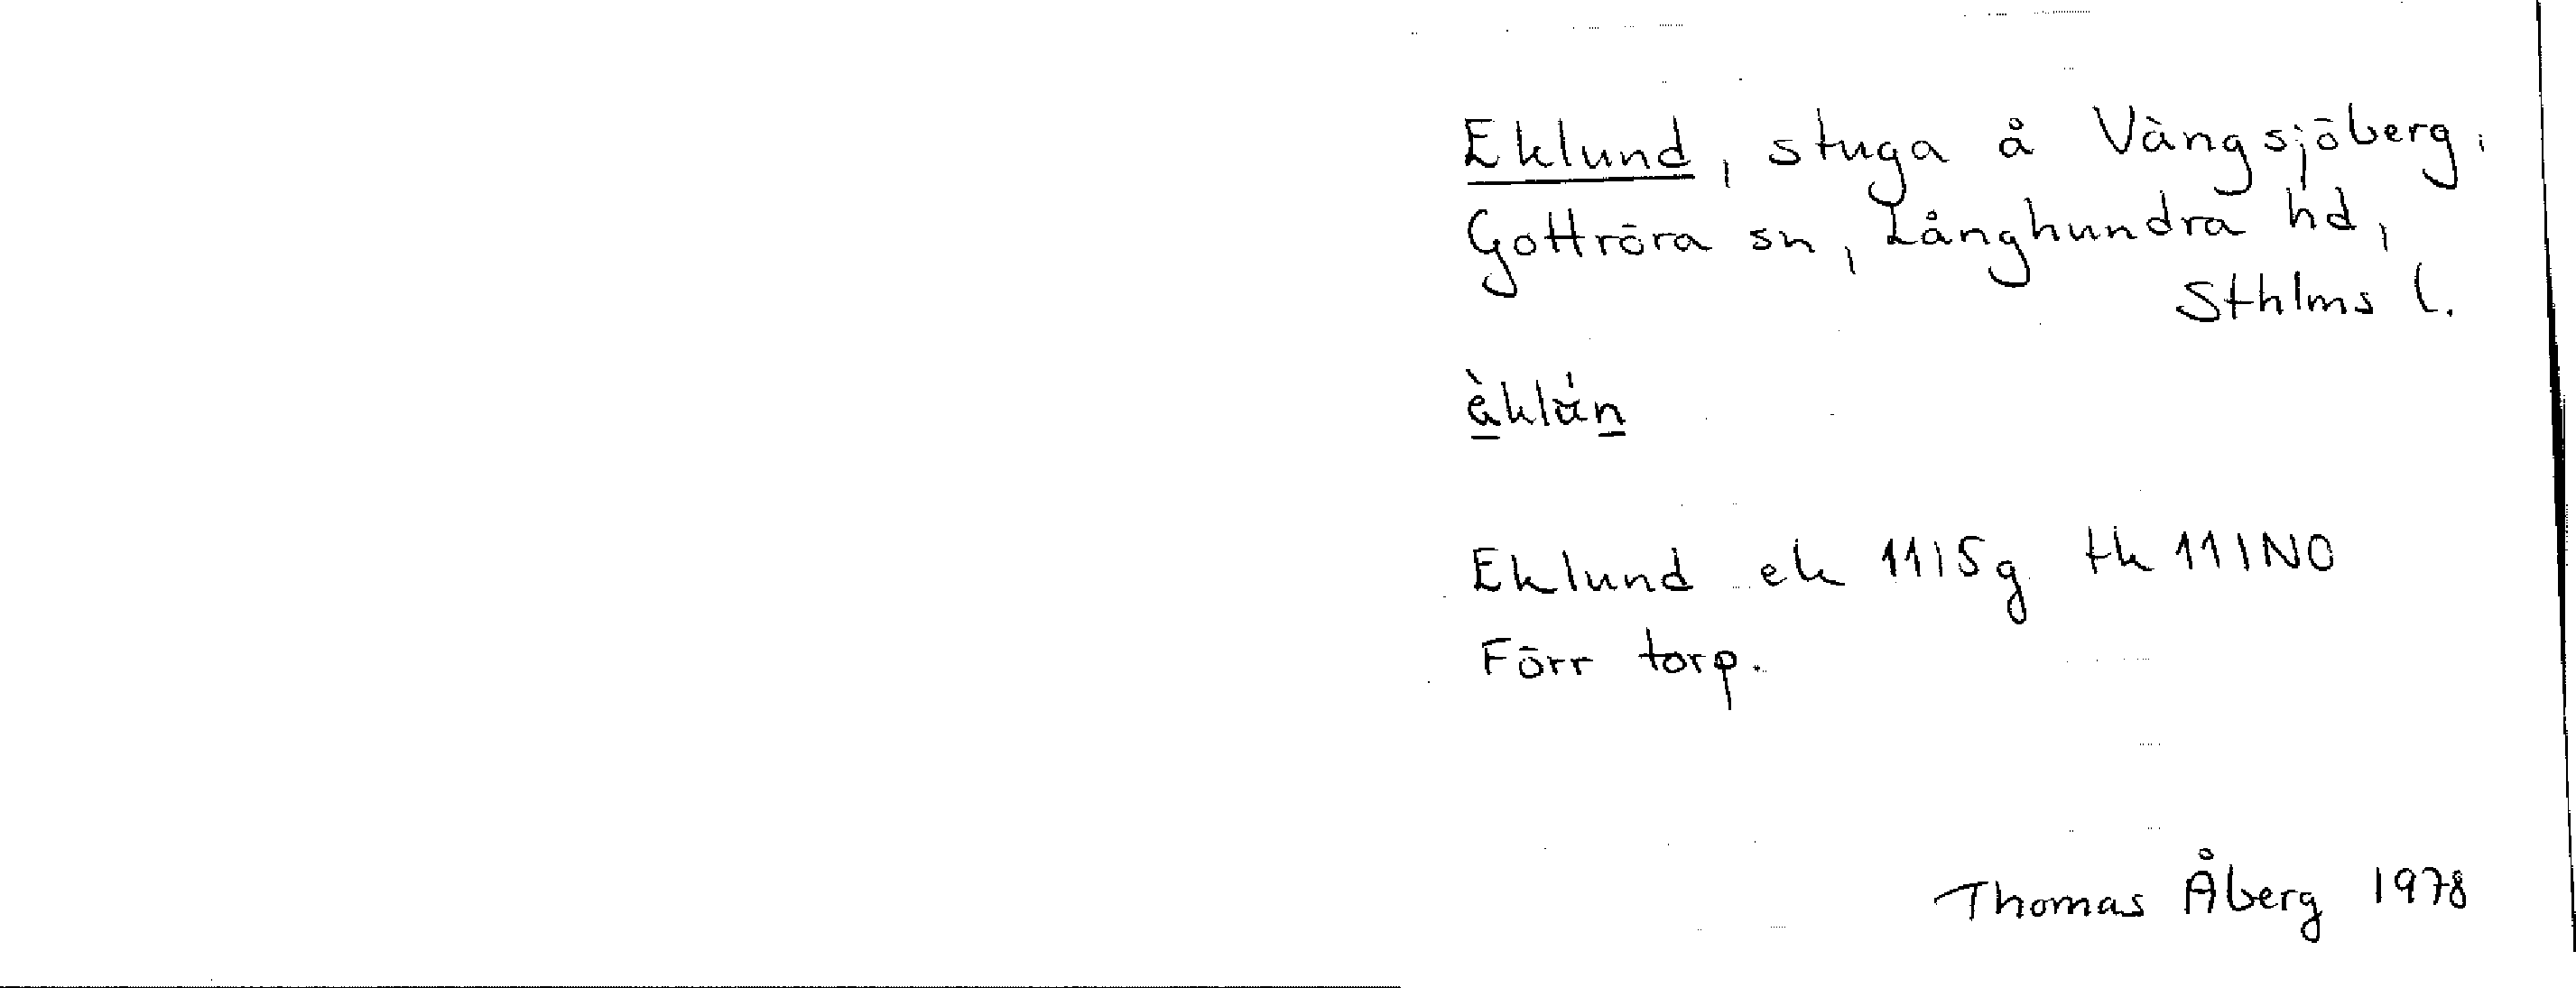 Eklund, stuga å Vängsjöberg,
Gottröra sn, Långhundra hd,
Sthlms l.
Eklund ek 11I5g tk 11INO
Förr torp.
Thomas Åberg 1978